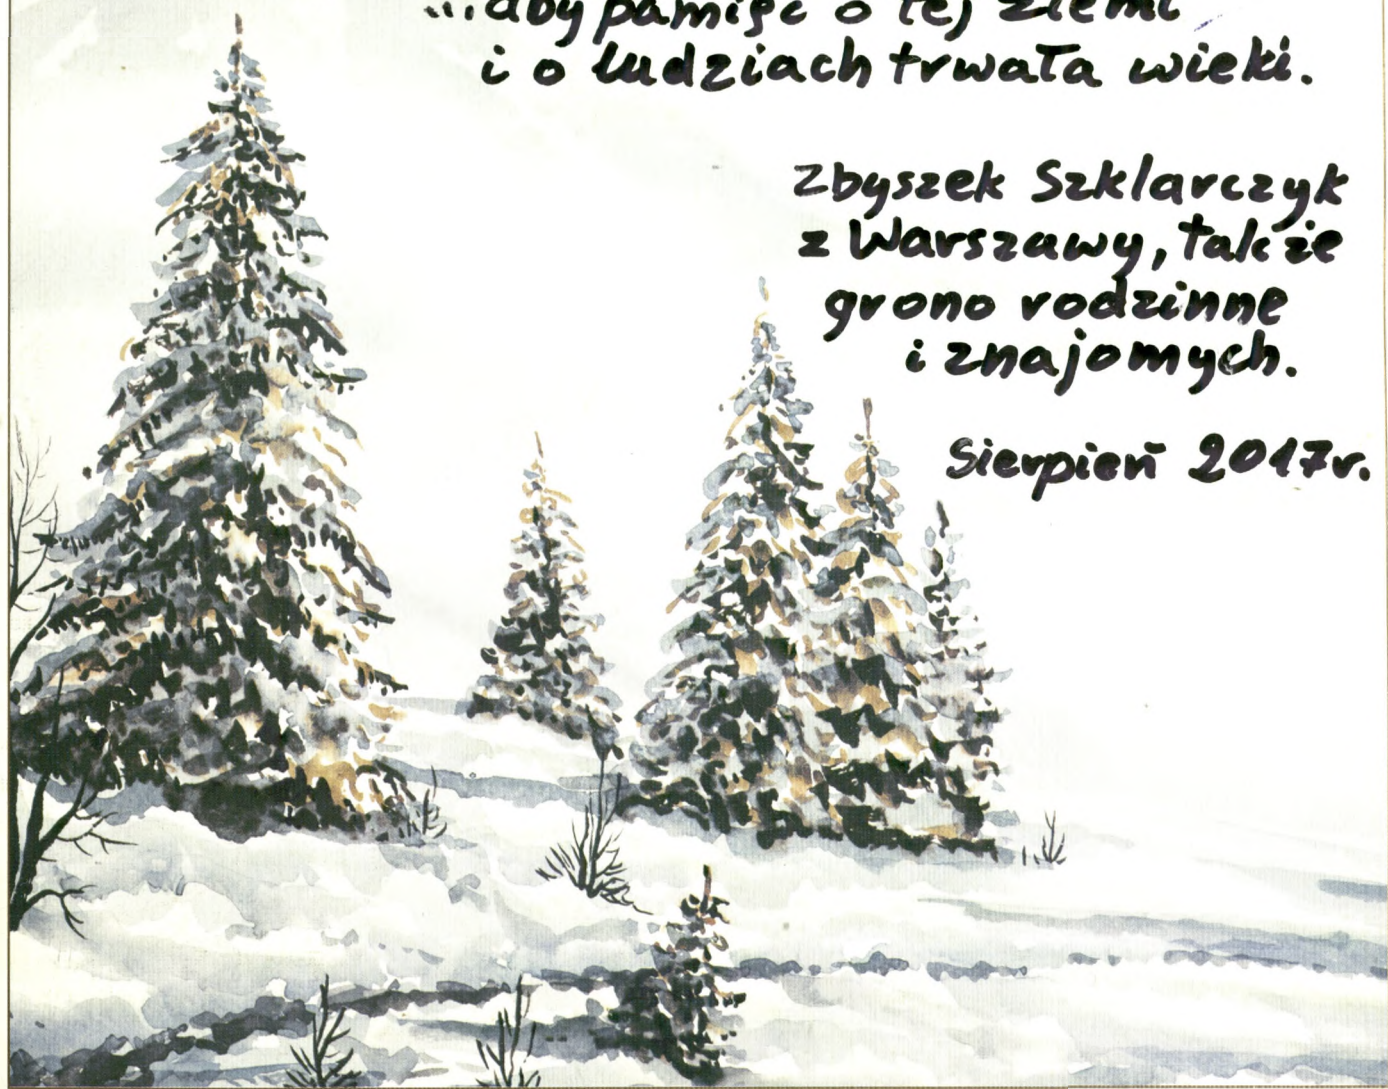 ...aby pamięć o tej ziemi
i o ludziach trwała wieki.
Zbyszek Szklarczyk
z Warszawy, także
grono rodzinne
i znajomych.
Sierpień 2017r.